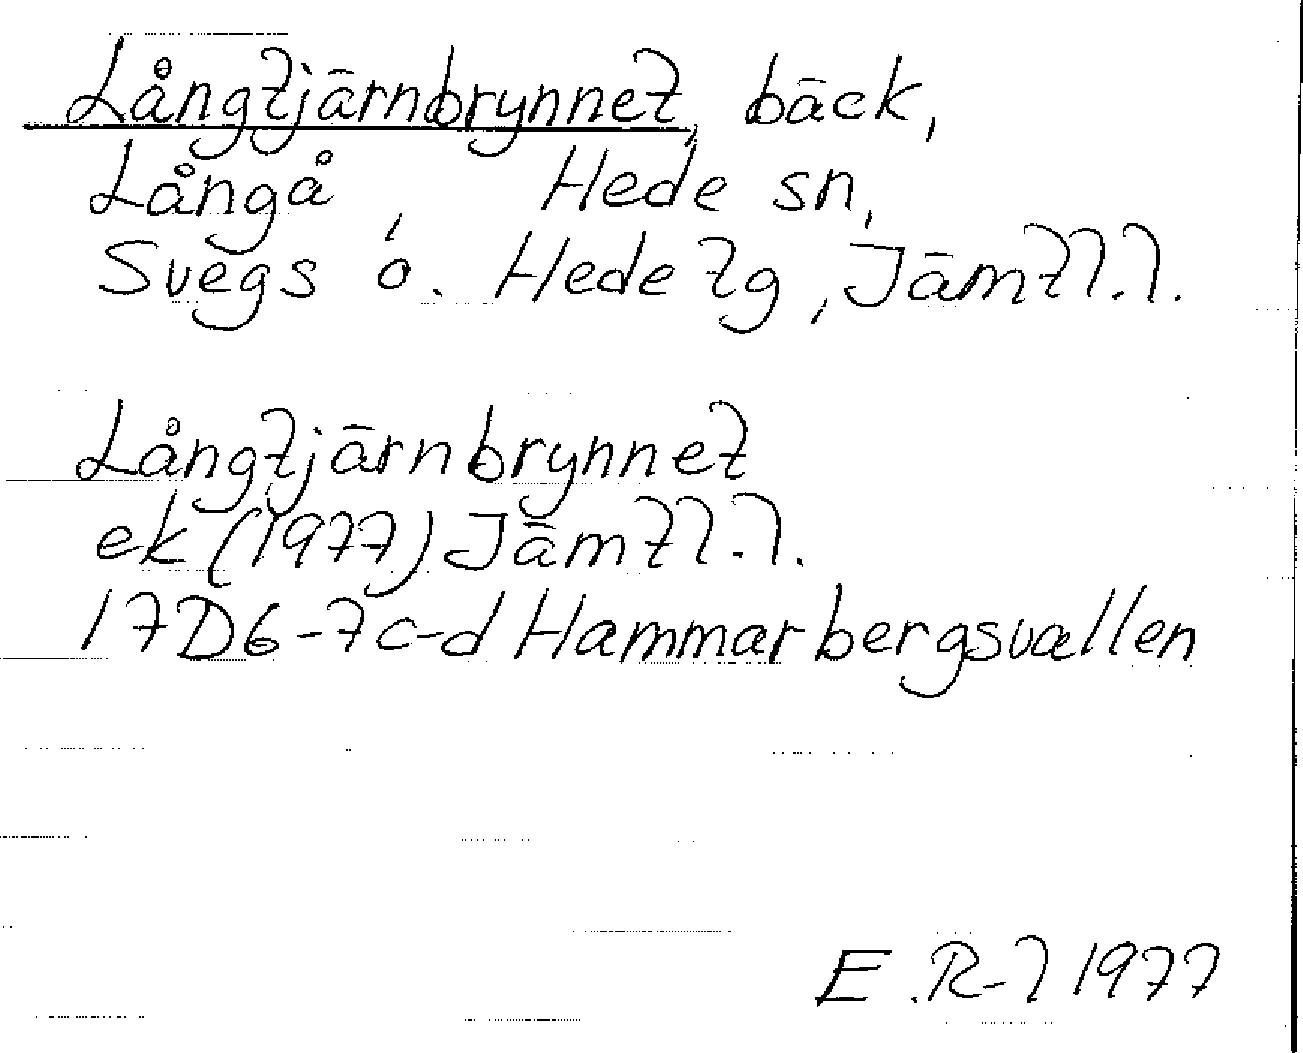 Långtjärnbrynnet, bäck,
Långå, Hede sn,
Svegs o. Hede tg, Jämtl. l.
Långtjärnbrynnet
ek (1977) Jämtl. l.
17D6-7c-d Hammarbergsvallen
E.R-l 1977